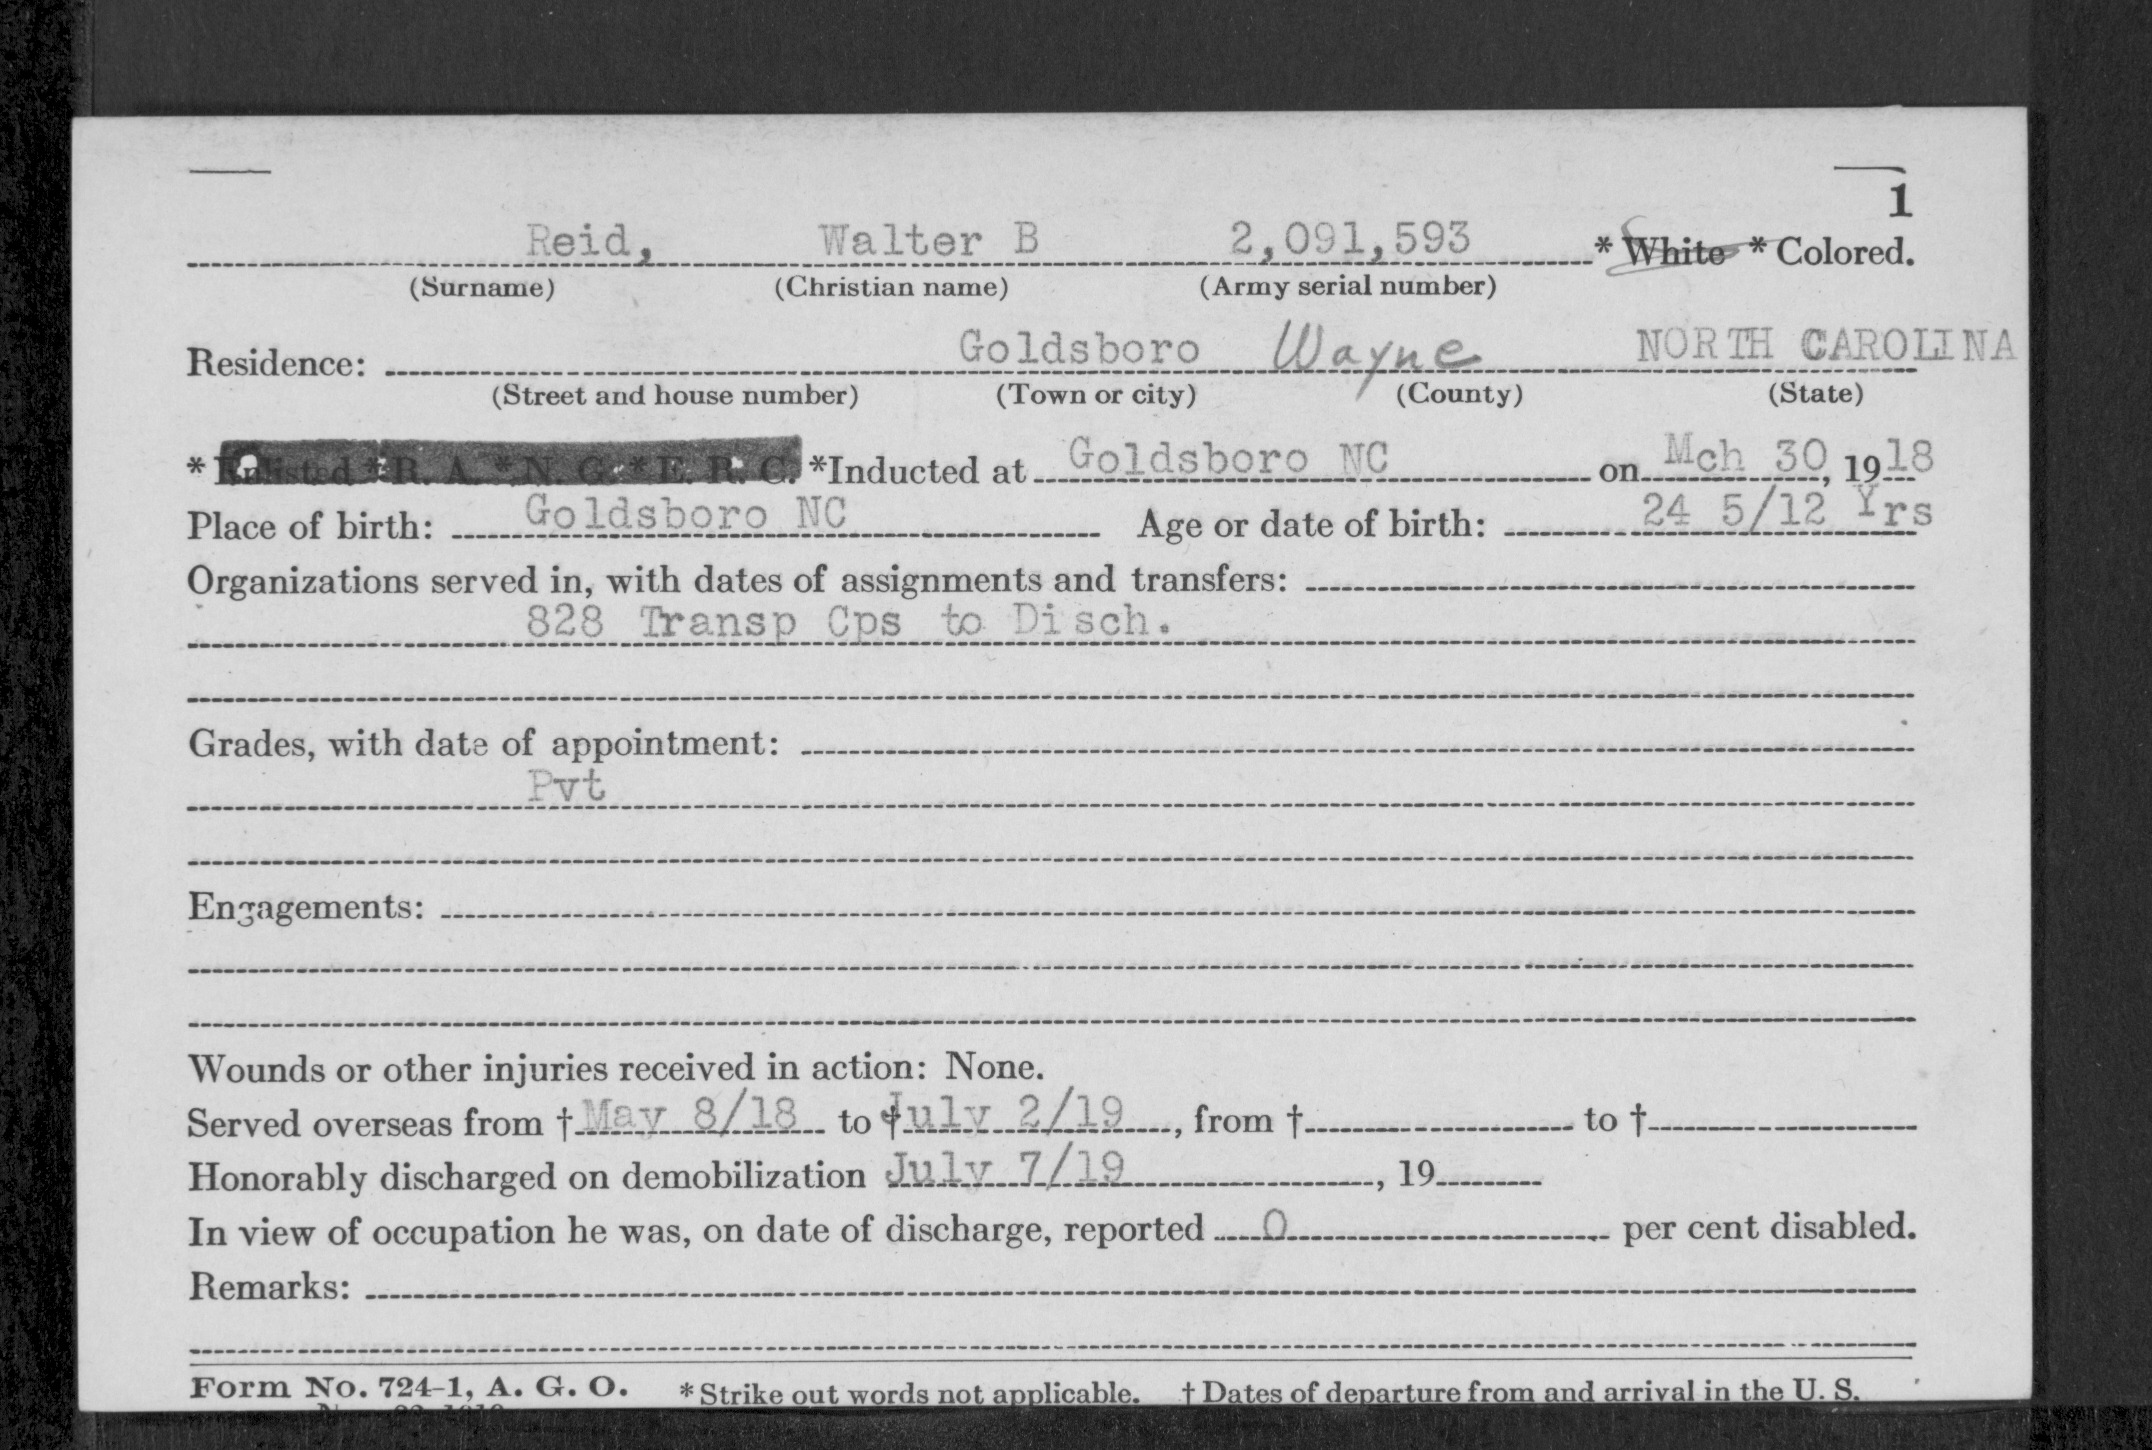 1
Reid, Walter B 2,091,593 * White * Colored.
(Surname) (Christian name) (Army serial number)
Residence: Goldsboro Wayne NORTH CAROLINA
(Street and house number) (Town or city) (County) (State)
* Enlisted * R. A. * N. G. * E. R. C. *Inducted at Goldsboro NC on Mch 30, 1918
Place of birth: Goldsboro NC Age or date of birth: 24 5/12 Yrs
Organizations served in, with dates of assignments and transfers:
828 Transp Cps to Disch.
Grades, with date of appointment:
Pvt
Engagements:
Wounds or other injuries received in action: None.
Served overseas from † May 8/18 to † July 2/19, from † to †
Honorably discharged on demobilization July 7/19, 19
In view of occupation he was, on date of discharge, reported 0 per cent disabled.
Remarks:
Form No. 724-1, A. G. O. * Strike out words not applicable. † Dates of departure from and arrival in the U. S.